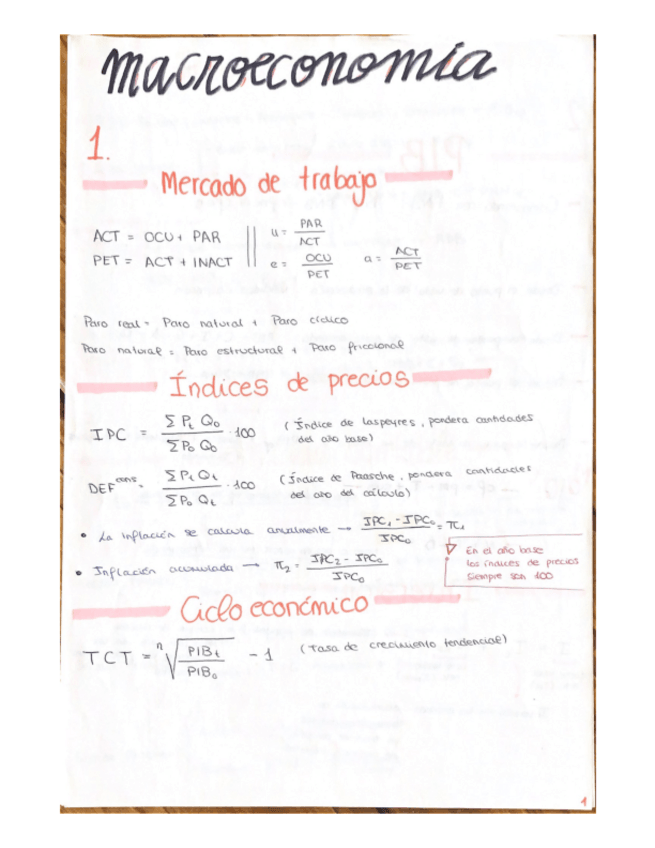 macroeconomía
1.
Mercado de trabajo
ACT = OCU + PAR || u = PAR / ACT
PET = ACT + INACT || e = OCU / PET a = ACT / PET
Paro real = Paro natural + Paro cíclico
Paro natural = Paro estructural + Paro friccional
Índices de precios
IPC = Σ Pt Q0 / Σ P0 Q0 · 100 (Índice de Laspeyres, pondera cantidades
del año base)
DEF cons = Σ Pt Qt / Σ P0 Qt · 100 (Índice de Paasche, pondera cantidades
del año del cálculo)
• La inflación se calcula anualmente → IPC1 - IPC0 / IPC0 = π1
• Inflación acumulada → π2 = IPC2 - IPC0 / IPC0
En el año base
los índices de precios
siempre son 100
Ciclo económico
TCT = n√ PIBt / PIB0 - 1 (Tasa de crecimiento tendencial)
1